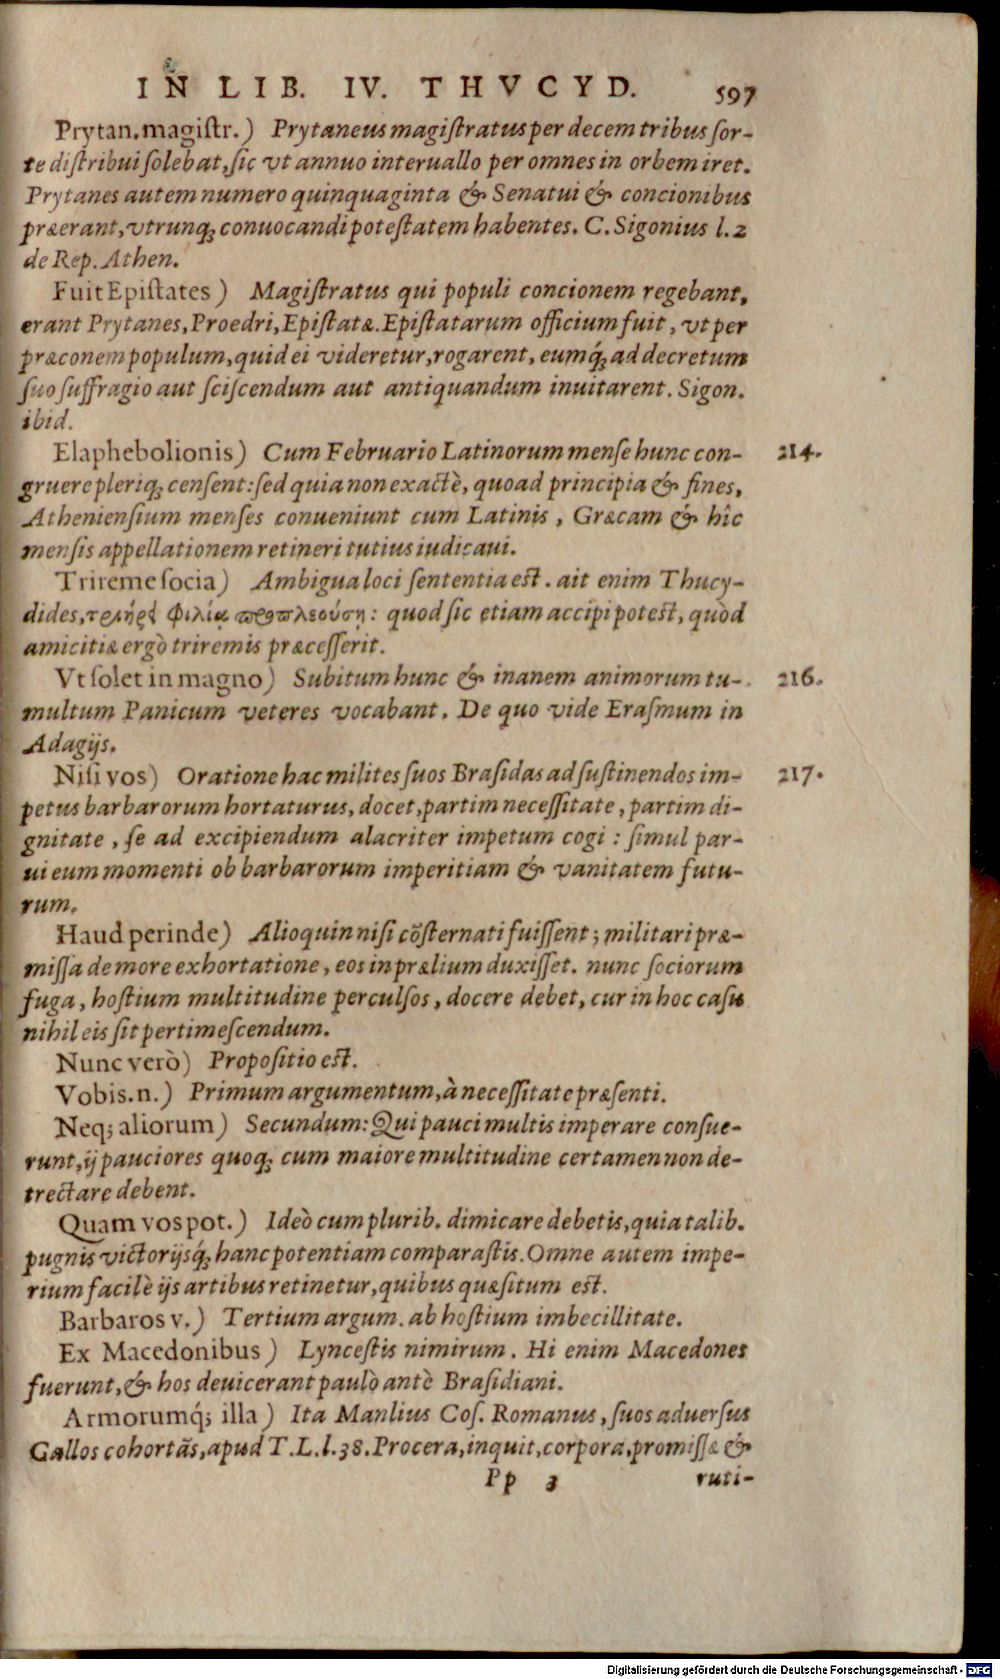 IN LIB. IV. THVCYD. 597
Prytan. magiſtr.) Prytaneus magiſtratus per decem tribus ſor-
te diſtribui ſolebat, ſic vt annuo interuallo per omnes in orbem iret.
Prytanes autem numero quinquaginta & Senatui & concionibus
præerant, vtrunq; conuocandi poteſtatem habentes. C. Sigonius l. 2
de Rep. Athen.
Fuit Epiſtates) Magiſtratus qui populi concionem regebant,
erant Prytanes, Proedri, Epiſtatæ. Epiſtatarum officium fuit, vt per
præconem populum, quid ei videretur, rogarent, eumq́; ad decretum
ſuo ſuffragio aut ſciſcendum aut antiquandum inuitarent. Sigon.
ibid.
Elaphebolionis) Cum Februario Latinorum menſe hunc con- 214.
gruere pleriq; cenſent: ſed quia non exactè, quoad principia & fines,
Athenienſium menſes conueniunt cum Latinis, Græcam & hîc
menſis appellationem retineri tutius iudicaui.
Trireme ſocia) Ambigua loci ſententia est. ait enim Thucy-
dides, τριήρει φιλίᾳ προπλεούσῃ: quod ſic etiam accipi potest, quòd
amicitiæ ergò triremis præceſſerit.
Vt ſolet in magno) Subitum hunc & inanem animorum tu- 216.
multum Panicum veteres vocabant. De quo vide Eraſmum in
Adagijs.
Niſi vos) Oratione hac milites ſuos Braſidas ad ſuſtinendos im- 217.
petus barbarorum hortaturus, docet, partim neceſſitate, partim di-
gnitate, ſe ad excipiendum alacriter impetum cogi: ſimul par-
ui eum momenti ob barbarorum imperitiam & vanitatem futu-
rum.
Haud perinde) Alioquin niſi cōſternati fuiſſent; militari præ-
miſſa de more exhortatione, eos in prælium duxiſſet. nunc ſociorum
fuga, hoſtium multitudine perculſos, docere debet, cur in hoc caſu
nihil eis ſit pertimeſcendum.
Nunc verò) Propoſitio est.
Vobis. n.) Primum argumentum, à neceſſitate præſenti.
Neq; aliorum) Secundum: Qui pauci multis imperare conſue-
runt, ij pauciores quoq; cum maiore multitudine certamen non de-
trectare debent.
Quam vos pot.) Ideò cum plurib. dimicare debetis, quia talib.
pugnis victorijsq́; hanc potentiam comparaſtis. Omne autem impe-
rium facilè ijs artibus retinetur, quibus quæſitum est.
Barbaros v.) Tertium argum. ab hoſtium imbecillitate.
Ex Macedonibus) Lynceſtis nimirum. Hi enim Macedones
fuerunt, & hos deuicerant paulò antè Braſidiani.
Armorumq́; illa) Ita Manlius Coſ. Romanus, ſuos aduerſus
Gallos cohortās, apud T. L. l. 38. Procera, inquit, corpora, promiſſæ &
Pp 3 ruti-
Digitalisierung gefördert durch die Deutsche Forschungsgemeinschaft - DFG